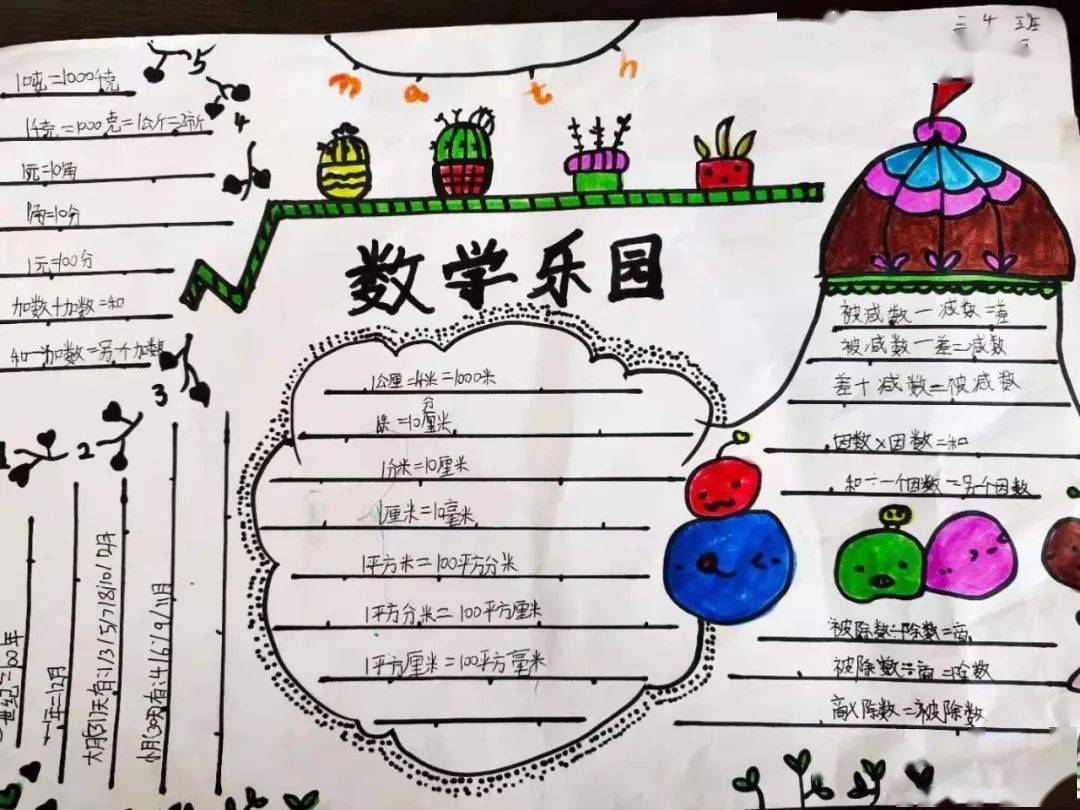 三 4 班
math
数学乐园
5
1吨=1000千克
4
1千克=1000克=1公斤=2市斤
1元=10角
1角=10分
1元=100分
加数+加数=和
和-加数=另一个加数
3
2
1
一世纪=100年
一年=12月
大月31天有:1/3/5/7/8/10/12月
小月30天有:4/6/9/11月
1公里=千米=1000米
分
1米=10厘米
1分米=10厘米
1厘米=10毫米
1平方米=100平方分米
1平方分米=100平方厘米
1平方厘米=100平方毫米
被减数-减数=差
被减数-差=减数
差+减数=被减数
因数×因数=和
和÷一个因数=另个因数
被除数÷除数=商
被除数÷商=除数
商×除数=被除数